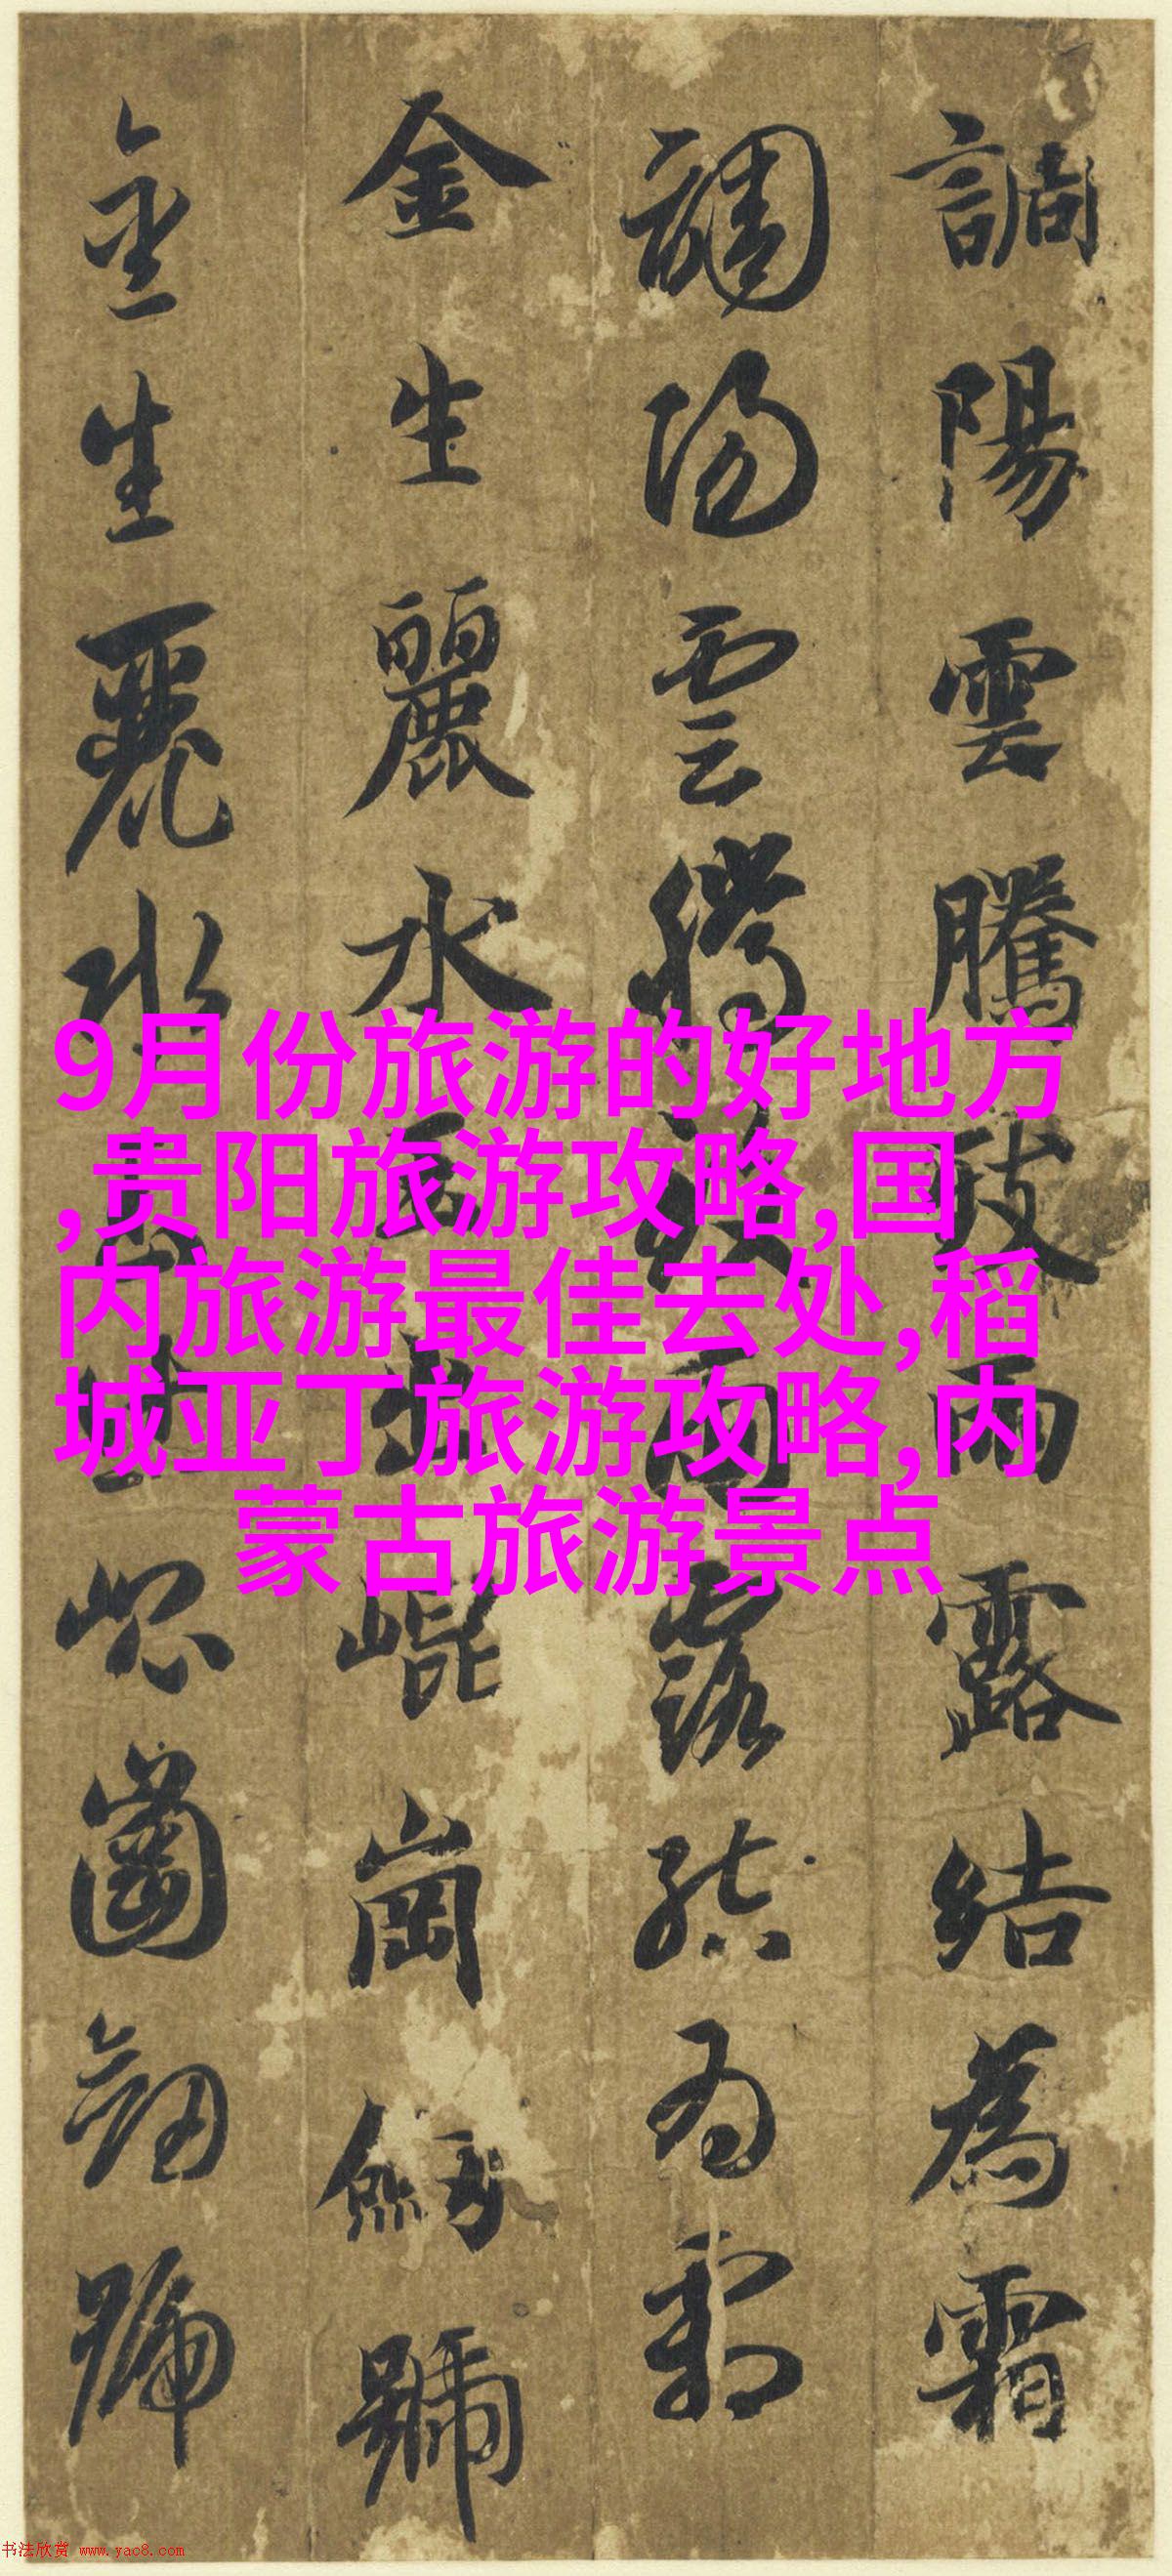 調陽雲騰致雨露結為霜
調陽雲騰致雨露結為霜
金生麗水玉出崐崗劒號
金生麗水玉出崐崗劒號
9月份旅游的好地方
,贵阳旅游攻略,国
内旅游最佳去处,稻
城亚丁旅游攻略,内
蒙古旅游景点
书法欣赏 www.yac8.com